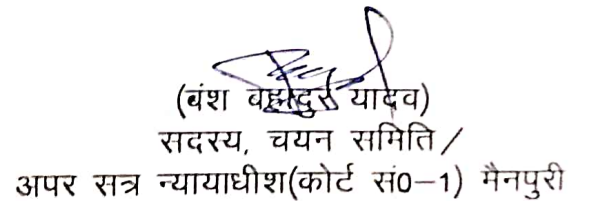 (बंश बहादुर यादव)
सदस्य, चयन समिति /
अपर सत्र न्यायाधीश(कोर्ट सं0-1) मैनपुरी